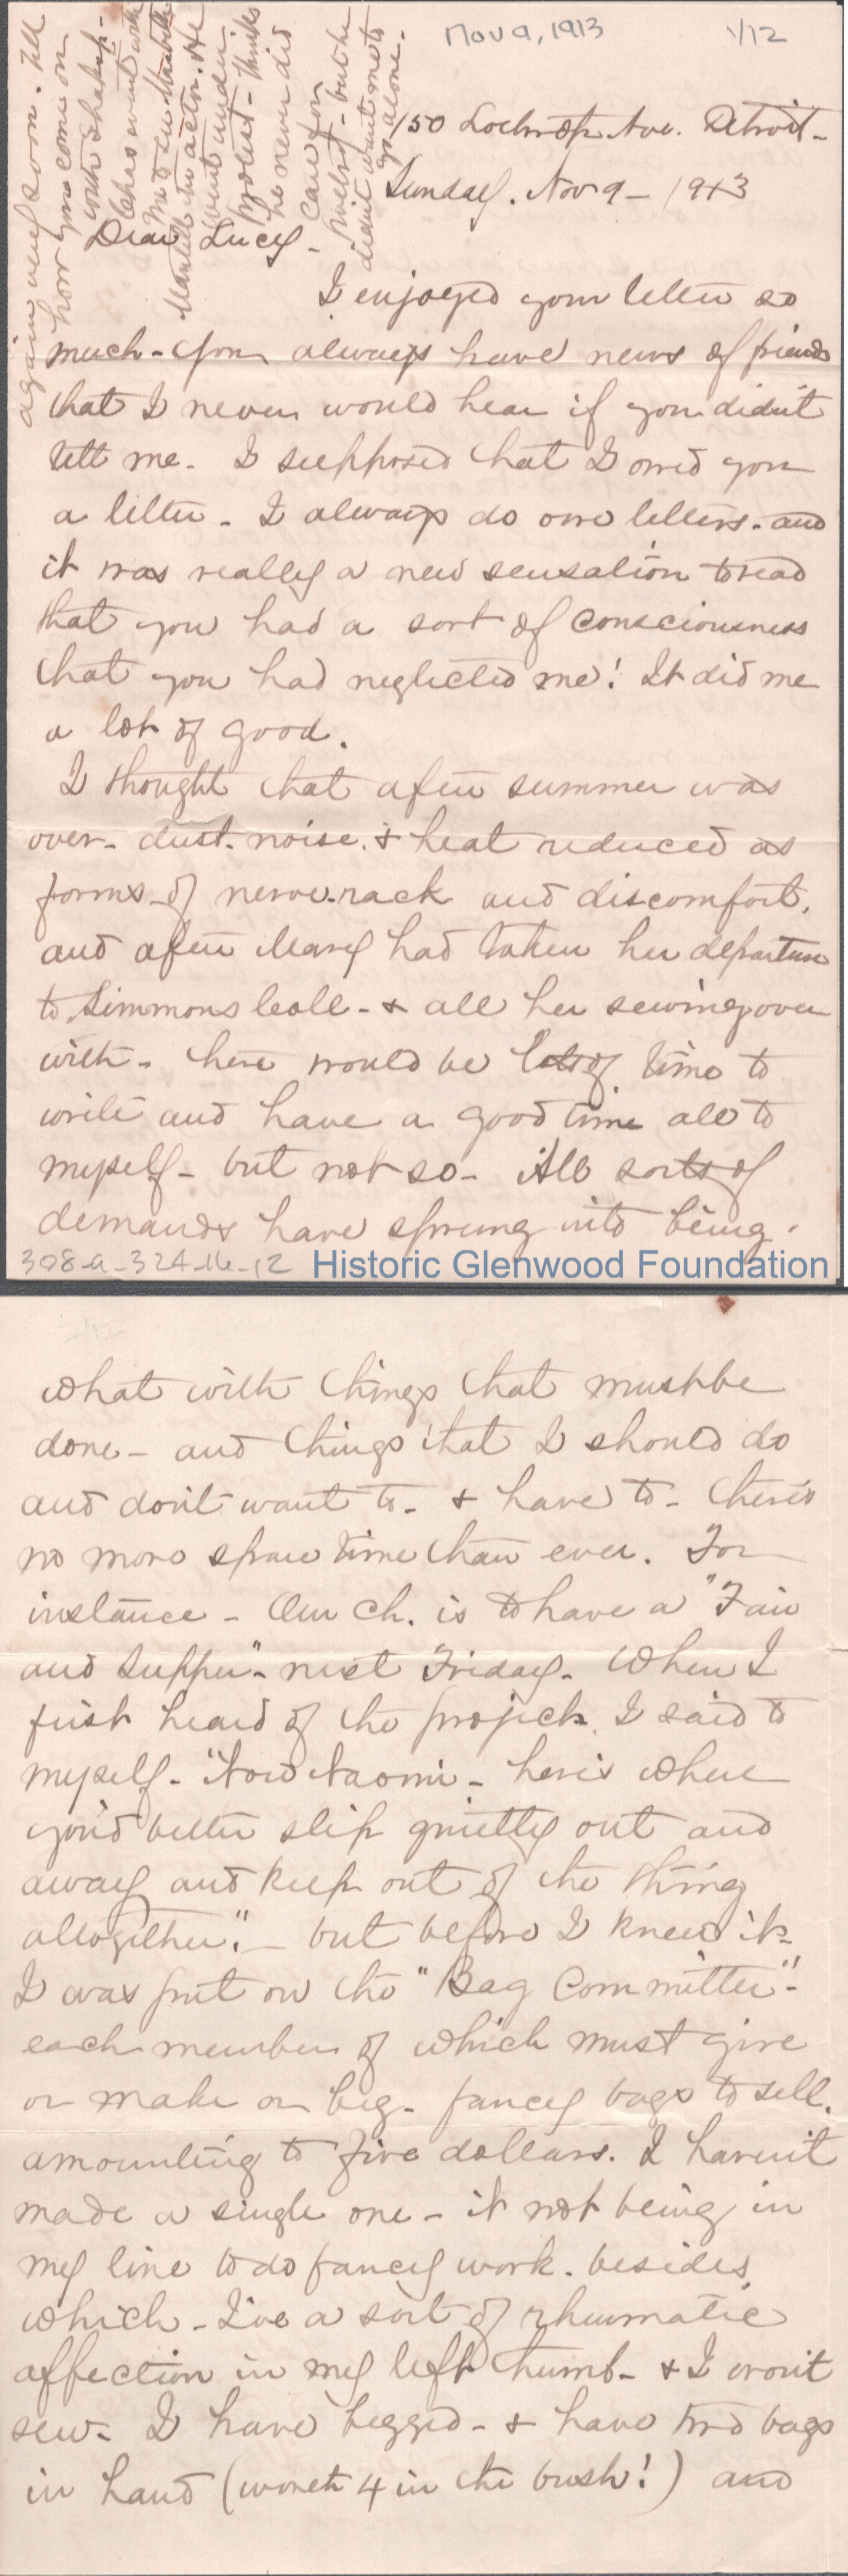 Nov 9, 1913
1/12
again very soon. Tell
how you come on
with Shakesp-
Chas went with
me to see Mantell
Mantell the actor. He
went under
protest - thinks
he never did
care for
- but he
didn't want me to
go alone.
150 Lothrop Ave. Detroit -
Sunday. Nov 9 - 1913
Dear Lucy -
I enjoyed your letter so
much - You always have news of friends
that I never would hear if you didn't
tell me. I supposed that I owed you
a letter - I always do owe letters - and
it was really a new sensation to read
that you had a sort of consciousness
that you had neglected me! It did me
a lot of good.
I thought that after summer was
over - dust - noise, & heat reduced as
forms of nerve-rack and discomfort,
and after Mary had taken her departure
to Simmons Coll - & all her sewing over
with - there would be lots of time to
write and have a good time all to
myself - but not so - All sorts of
demands have sprung into being.
308-a-324-16-12
Historic Glenwood Foundation
What with things that must be
done - and things that I should do
and don't want to - & have to - there's
no more spare time than ever. For
instance - Our Ch. is to have a "Fair
and Supper" - next Friday. When I
first heard of the project, I said to
myself - "Now Naomi - here's where
you'd better slip quietly out and
away and keep out of the thing
altogether." - but before I knew it -
I was put on the "Bag Committee" -
each member of which must give
or make or beg - fancy bags to sell.
amounting to five dollars. I haven't
made a single one - it not being in
my line to do fancy work. besides
which - I've a sort of rheumatic
affection in my left thumb - & I won't
sew - I have begged - & have two bags
in hand (worth 4 in the bush!) and